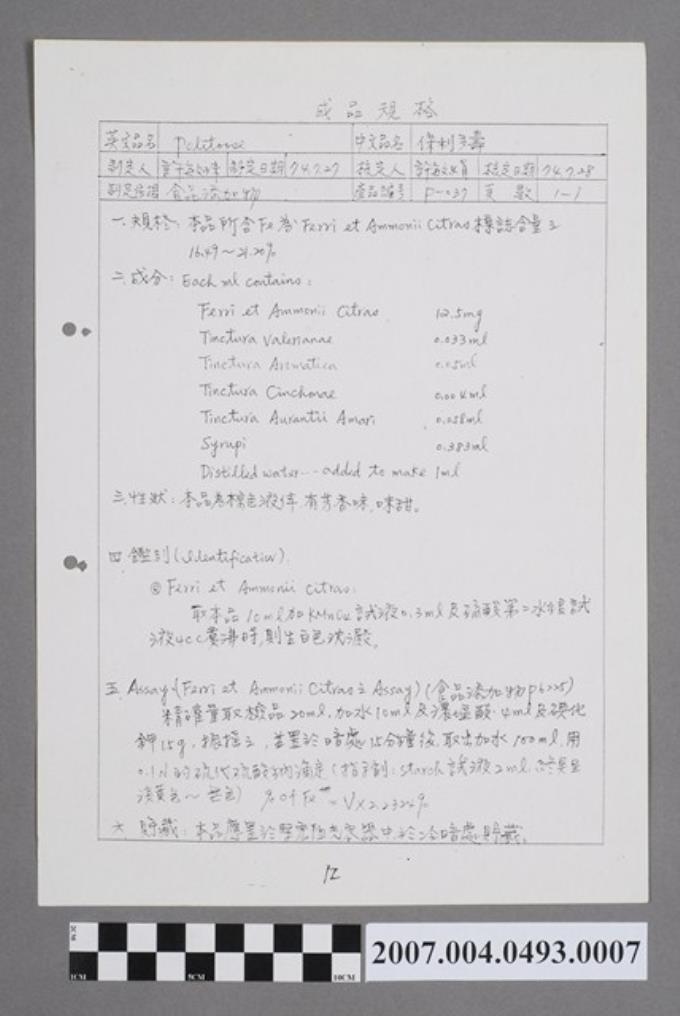 成品規格
英文品名 Politonse 中文品名 保利多壽
制定人 制定日期 74.7.27 核定人 核定日期 74.7.28
制定依據 食品添加物 產品編號 P-037 頁數 1-1
一.規格: 本品所含Fe為Ferri et Ammonii Citras標誌含量之
16.49~21.20%
二.成分: Each ml contains:
Ferri et Ammonii Citras 12.5mg
Tinctura Valerianae 0.033ml
Tinctura Aromatica 0.05ml
Tinctura Cinchonae 0.004ml
Tinctura Aurantii Amari 0.058ml
Syrupi 0.383ml
Distilled water---added to make 1ml
三.性狀: 本品為棕色液体,有芳香味,味甜。
四.鑑別(Identification).
◎ Ferri et Ammonii Citras:
取本品10ml加KMnO4試液0.3ml及硫酸第二水銀試
液4cc煮沸時,則生白色沈澱。
五.Assay:(Ferri et Ammonii Citras之Assay)(食品添加物P6225)
精確量取檢品20ml,加水10ml及濃鹽酸4ml及碘化
鉀15g,振搖之,並置於暗處15分鐘後,取出加水100ml,用
0.1N的硫代硫酸鈉滴定(指示劑:starch試液2ml,終點呈
淡黃色~無色) % of Fe = V×2.2324%
六.貯藏: 本品應置於緊密阻光容器中,於冷暗處貯藏。
12
2CM
1CM
5CM
10CM
2007.004.0493.0007